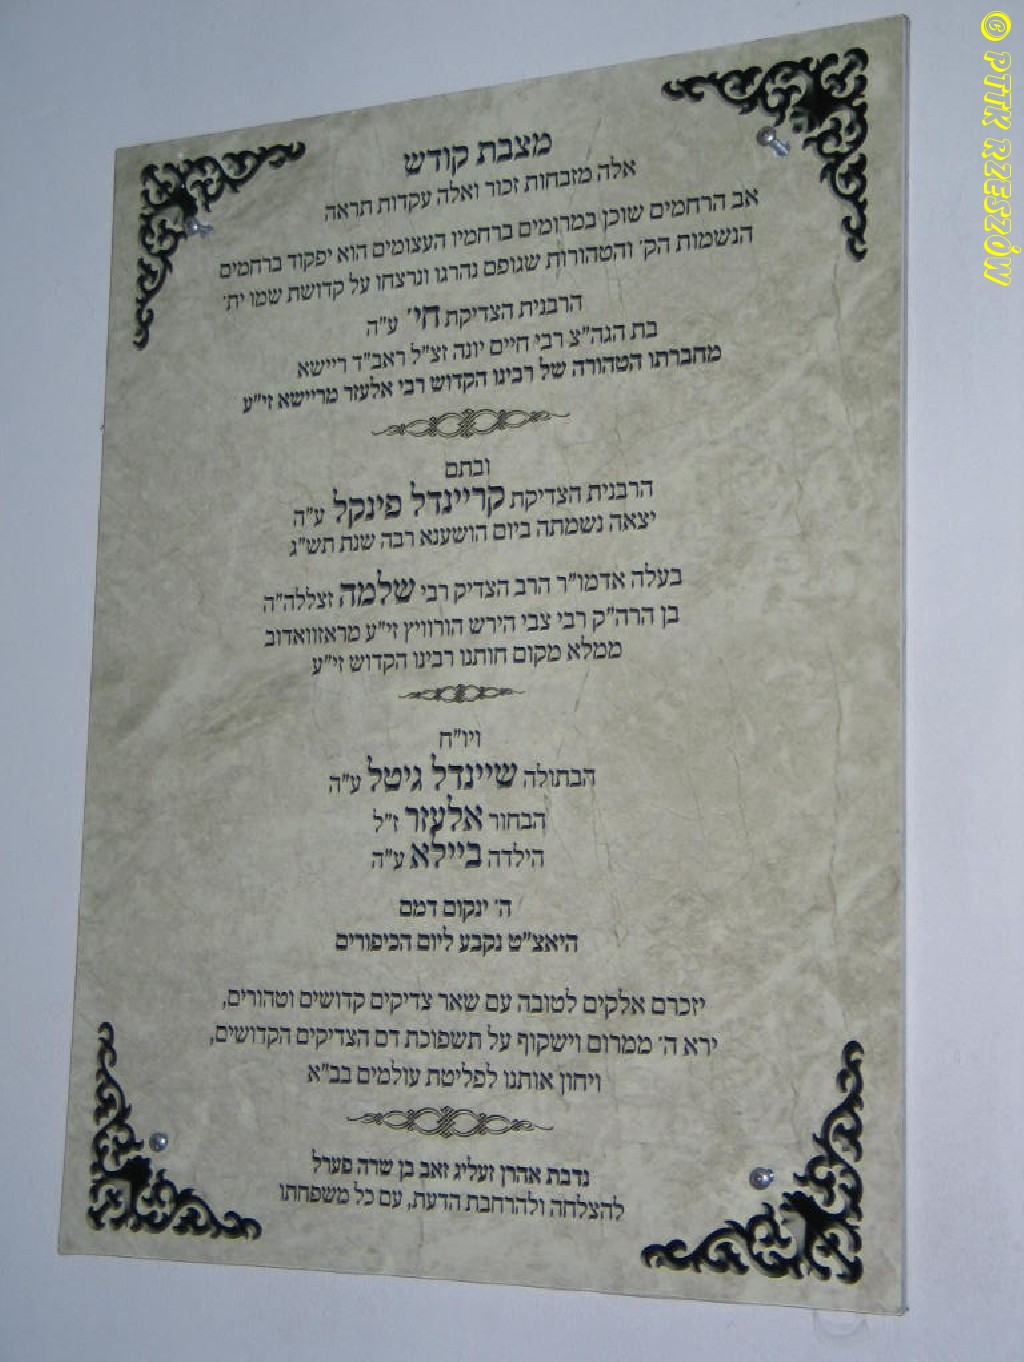 מצבת קודש
אלה מזבחות זכור ואלה עקדות תראה
אב הרחמים שוכן במרומים ברחמיו העצומים הוא יפקוד ברחמים
הנשמות הק׳ והטהורות שגופם נהרגו ונרצחו על קדושת שמו ית׳
הרבנית הצדיקת חי׳ ע״ה
בת הגה״צ רבי חיים יונה זצ״ל ראב״ד ריישא
מחברתו הטהורה של רבינו הקדוש רבי אלעזר מריישא זי״ע
ובתם
הרבנית הצדיקת קריינדל פינקל ע״ה
יצאה נשמתה ביום הושענא רבה שנת תש״ג
בעלה אדמו״ר הרב הצדיק רבי שלמה זצללה״ה
בן הרה״ק רבי צבי הירש הורוויץ זי״ע מראזוואדוב
ממלא מקום חותנו רבינו הקדוש זי״ע
ויו״ח
הבתולה שיינדל גיטל ע״ה
הבחור אלעזר ז״ל
הילדה ביילא ע״ה
ה׳ ינקום דמם
היאצ״ט נקבע ליום הכיפורים
יזכרם אלקים לטובה עם שאר צדיקים קדושים וטהורים,
ירא ה׳ ממרום וישקוף על תשפוכת דם הצדיקים הקדושים,
ויחון אותנו לפליטת עולמים בב״א
נדבת אהרן זעליג זאב בן שרה פערל
להצלחה ולהרחבת הדעת, עם כל משפחתו
© PTTK RZESZÓW